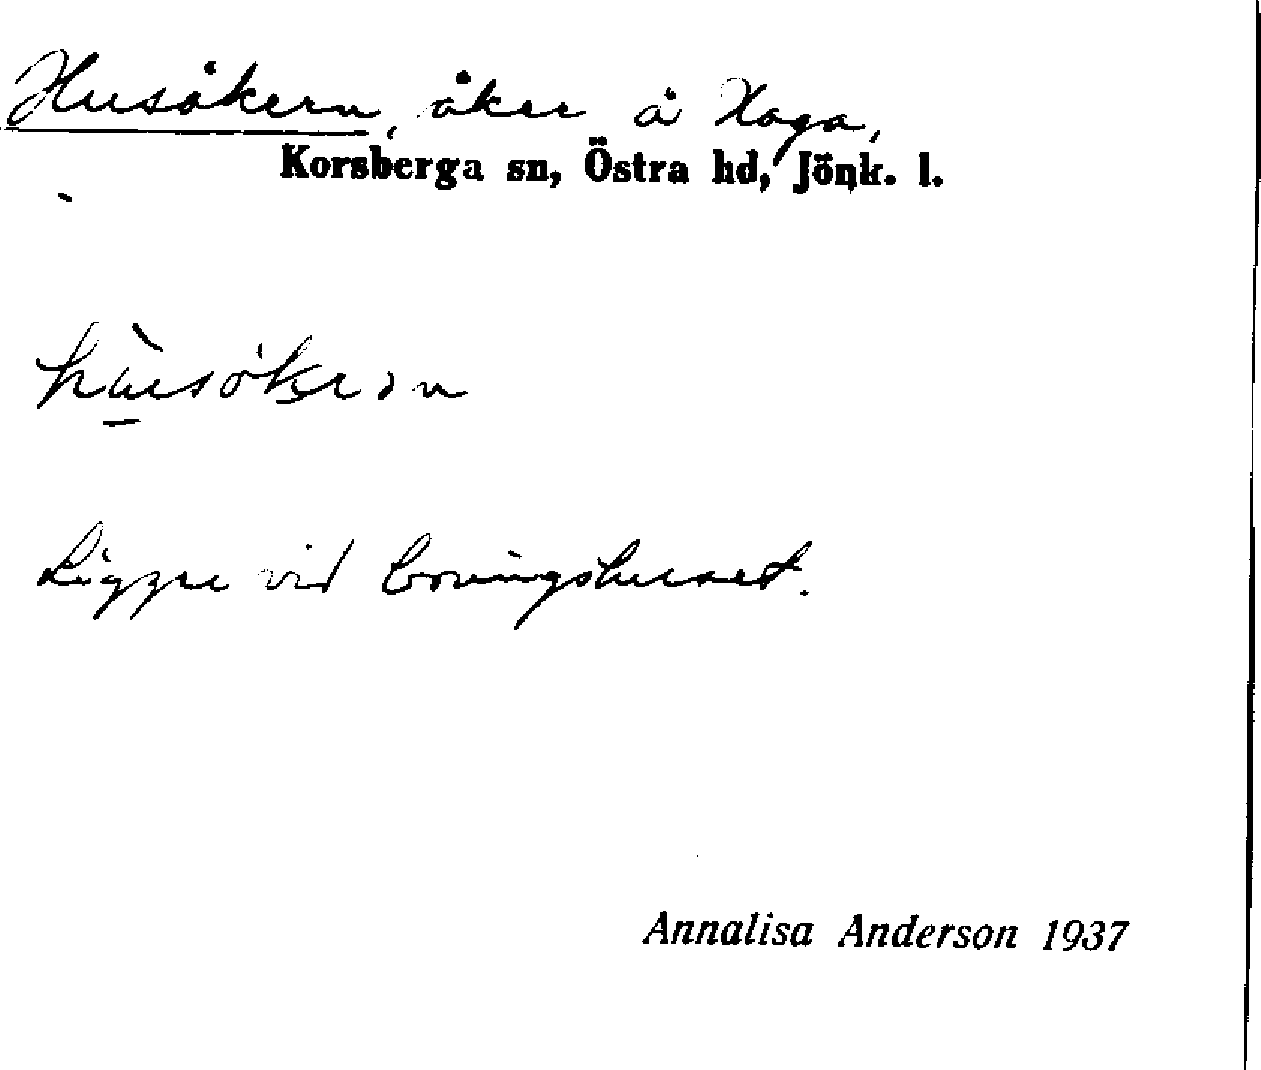 Husåkern, åker å Haga,
Korsberga sn, Östra hd, Jönk. l.
Ligger vid boningshuset.
Annalisa Anderson 1937